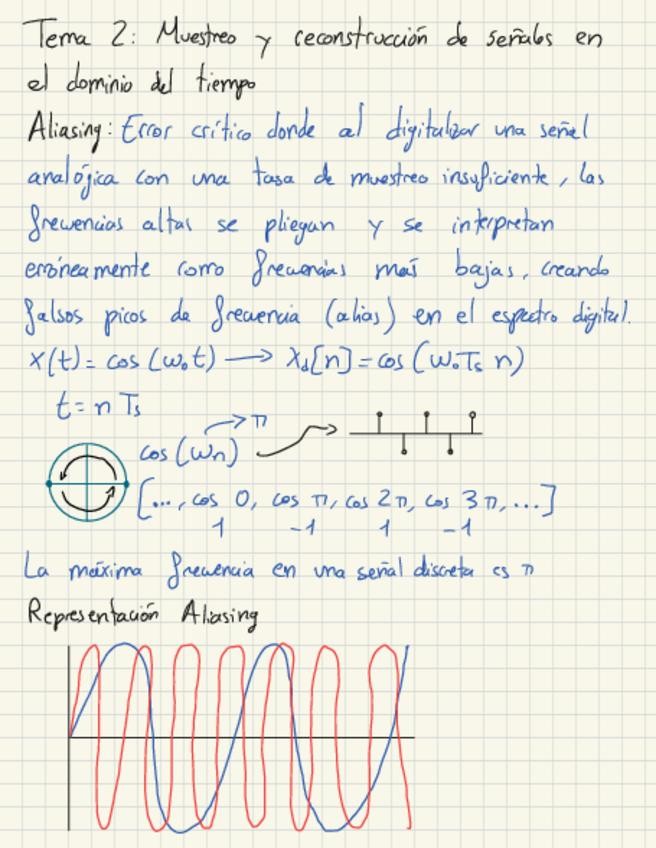 Tema 2: Muestreo y reconstrucción de señales en
el dominio del tiempo
Aliasing: Error crítico donde al digitalizar una señal
analógica con una tasa de muestreo insuficiente, las
frecuencias altas se pliegan y se interpretan
erróneamente como frecuencias más bajas, creando
falsos picos de frecuencia (alias) en el espectro digital.
x(t) = cos (ω₀t) → x_d[n] = cos (ω₀Ts n)
t = n Ts
cos (ωn) → π
[..., cos 0, cos π, cos 2π, cos 3π, ...]
1 -1 1 -1
La máxima frecuencia en una señal discreta es π
Representación Aliasing